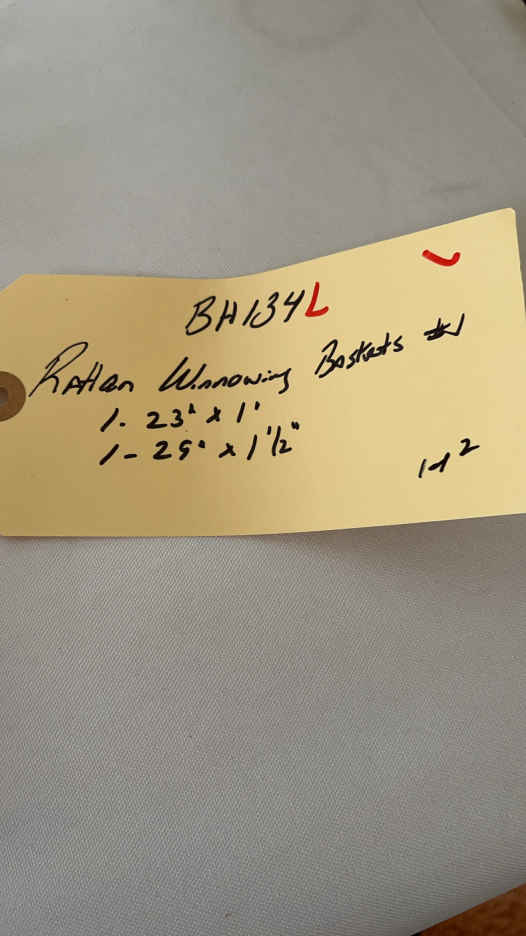 BH134L
Rattan Winnowing Baskets #1
1- 23" x 1"
1- 25" x 1 1/2"